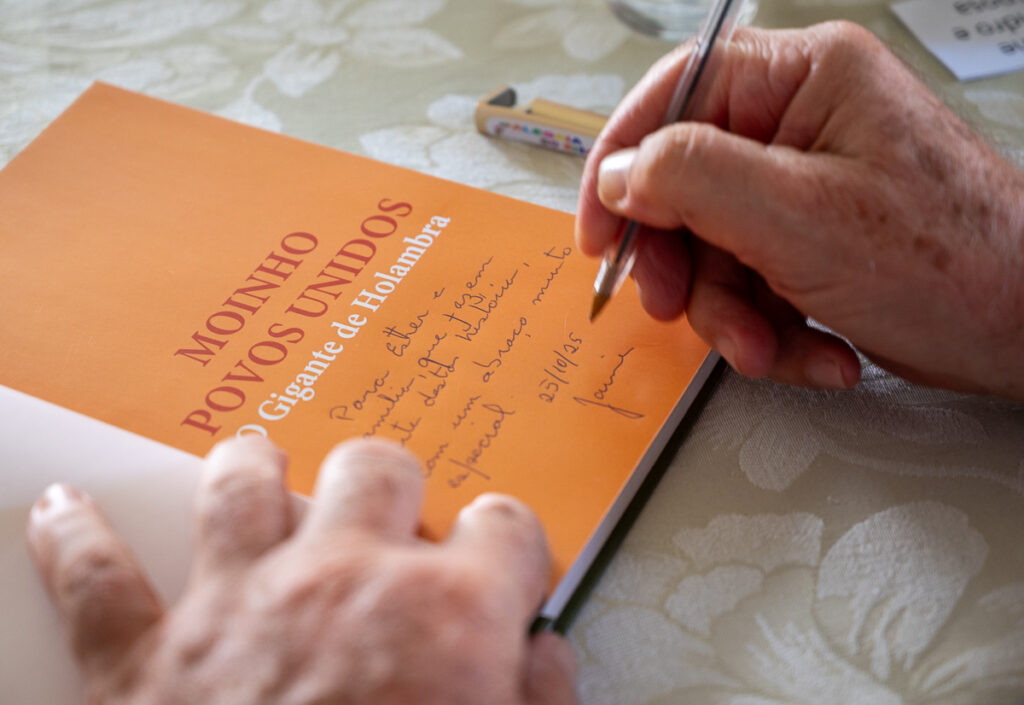 MOINHO
POVOS UNIDOS
O Gigante de Holambra
Para Esther e
família, que fazem
desta história,
com um abraço muito
especial.
25/10/25
Jaime
dro e